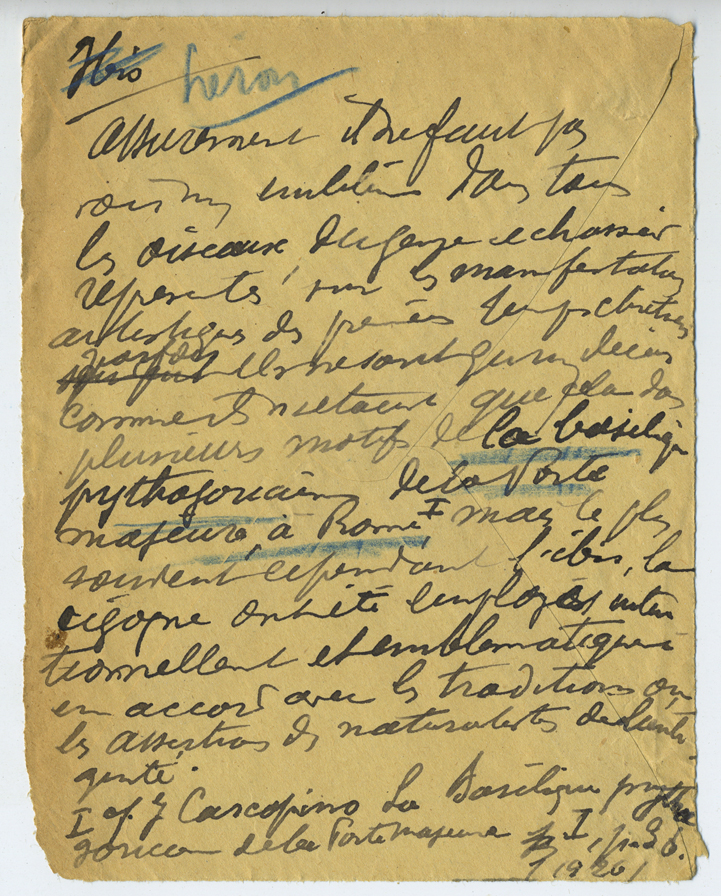 Ibis héron
Assurement il ne faut pas
voir un emblème dans tous
les oiseaux du genre echassier
représentés sur les manifestations
artistiques des premiers temps chretiens
parfois ils ne sont qu'un décor
comme ils n'etaient que cela dans
plusieurs motifs de la basilique
pythagoricienne de la Porte
majeure, à Rome I mais le plus
souvent cependant l'ibis, la
cigogne ont été employés inten
tionnellement et emblematiquement
en accord avec les traditions ou
les assertions des naturalistes de l'anti-
quité.
I cf. J Carcopino La Basilique pytha
goricienne de la Porte Majeure I, p.
1926